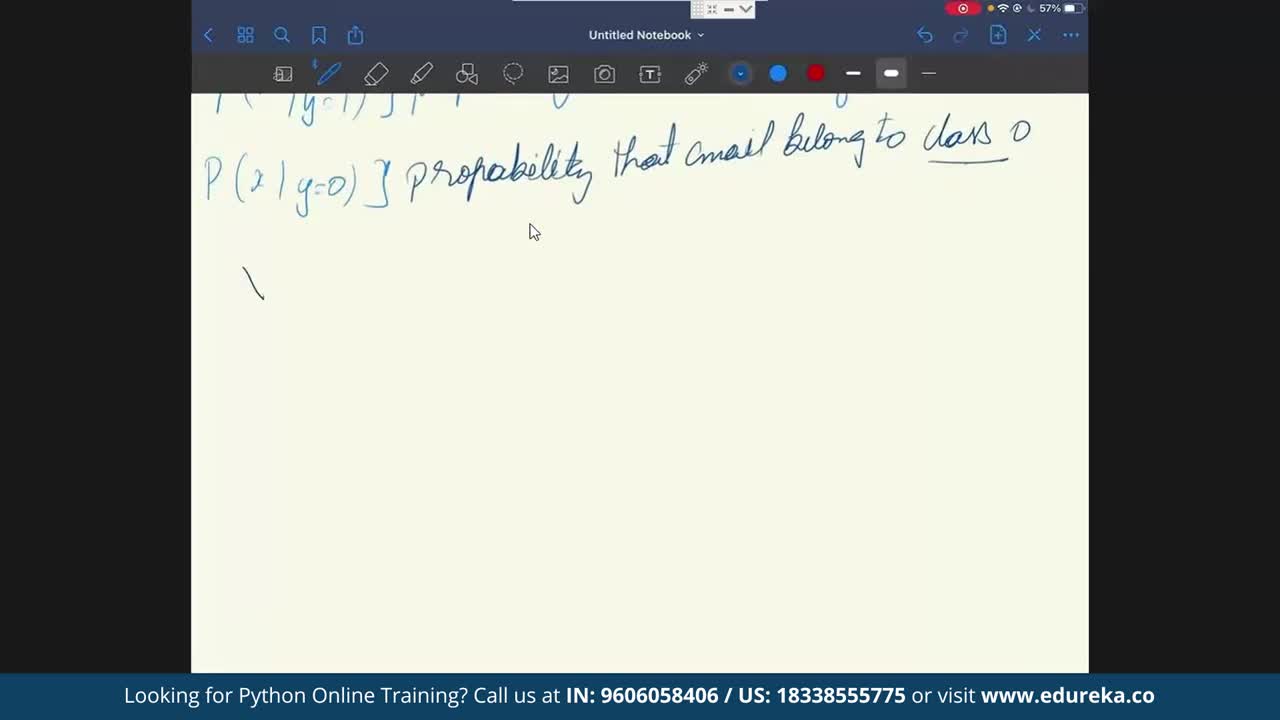 57%
Untitled Notebook
P(x|y=0)] propability that email belong to class 0
Looking for Python Online Training? Call us at IN: 9606058406 / US: 18338555775 or visit www.edureka.co